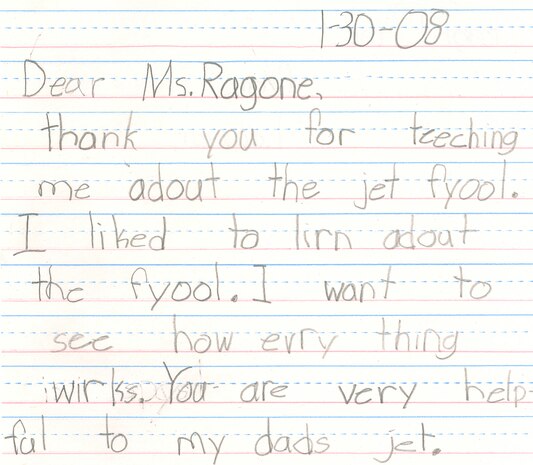 1-30-08
Dear Ms. Ragone,
thank you for teeching
me adout the jet fyool.
I liked to lirn adout
the fyool. I want to
see how evry thing
wirks. You are very help-
ful to my dads jet.